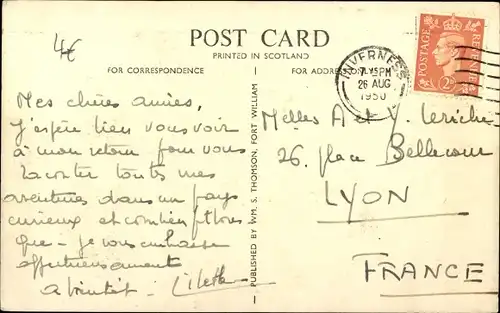 4€
POST CARD
PRINTED IN SCOTLAND
FOR CORRESPONDENCE
FOR ADDRESS ONLY
INVERNESS
7 PM
26 AUG
1950
POSTAGE
REVENUE
2D
Mes chères amies,
J'espère bien vous voir
à mon retour pour vous
raconter toutes mes
aventures dans un pays
curieux et combien pittores
que - je vous embrasse
affectueusement
à bientôt -
PUBLISHED BY WM. S. THOMSON, FORT WILLIAM
Melles A et Y
26, place Bellecour
LYON
FRANCE